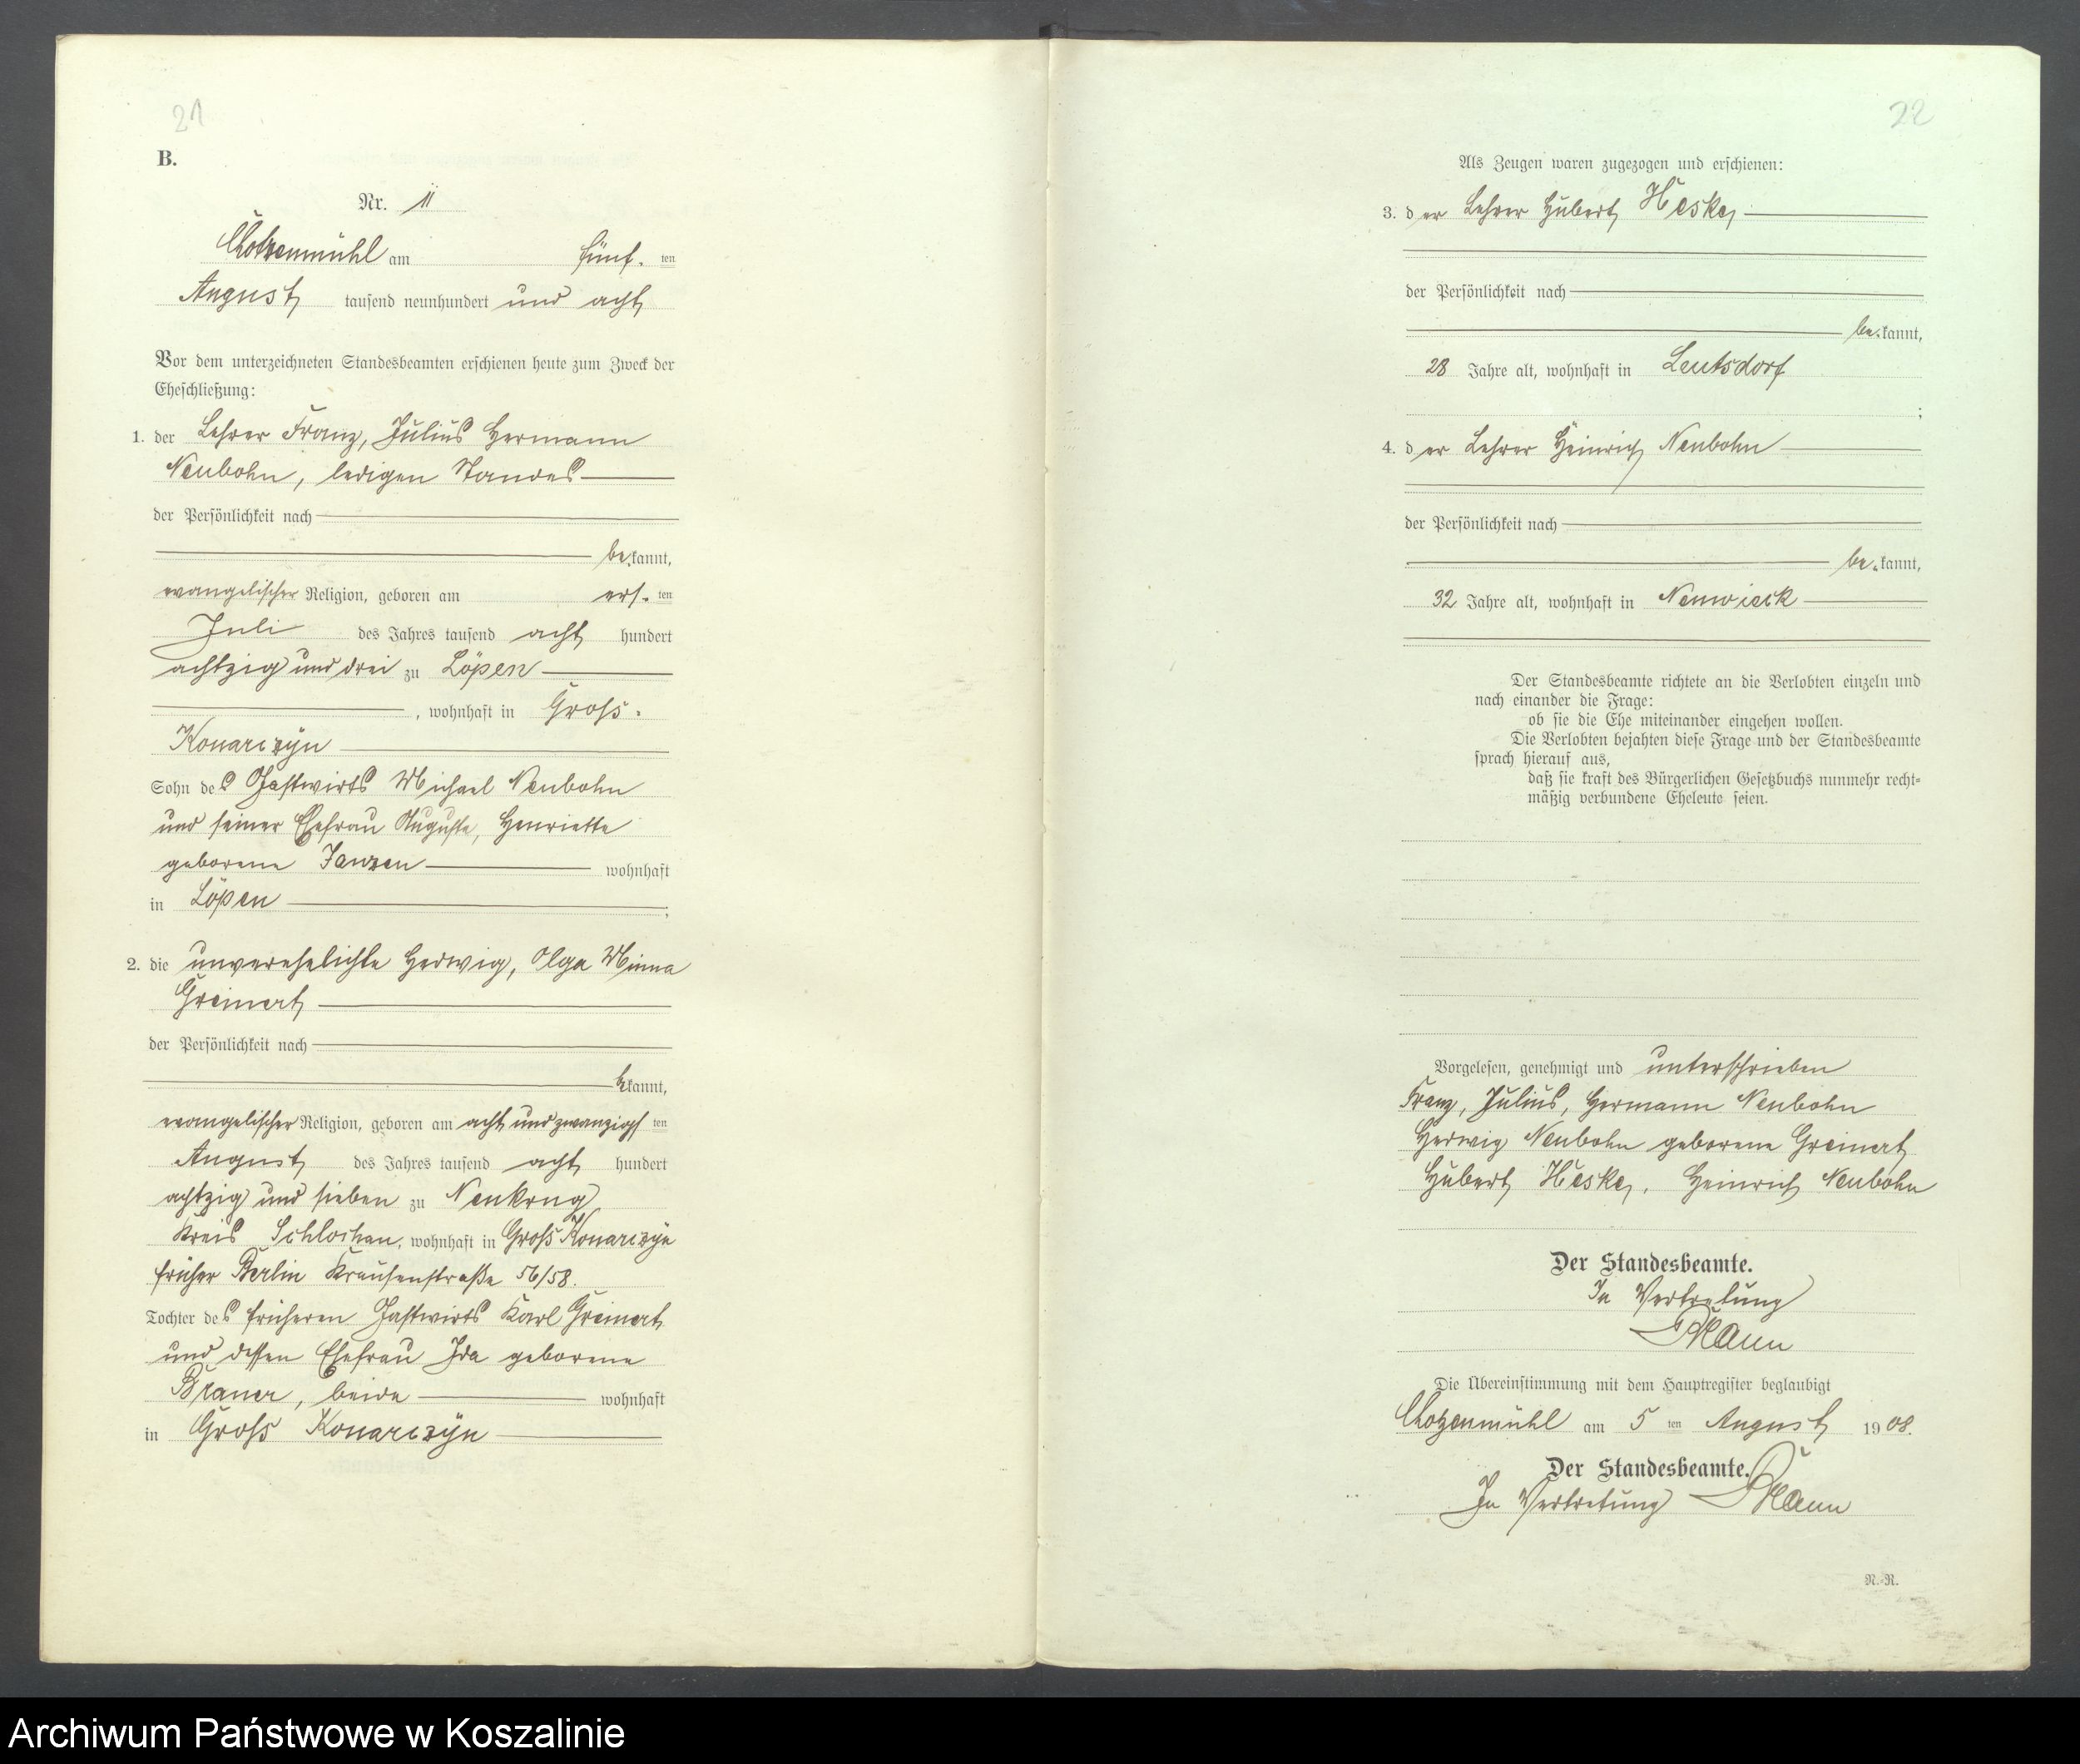 21
B.
Nr. 11
Chotzenmühl am fünf. ten
August tausend neunhundert und acht
Vor dem unterzeichneten Standesbeamten erschienen heute zum Zweck der
Eheschließung:
1. der Lehrer Franz, Julius Hermann
Neubohn, ledigen Standes
der Persönlichkeit nach
be. kannt,
evangelischer Religion, geboren am ers. ten
Juli des Jahres tausend acht hundert
achtzig und drei zu Löpen
, wohnhaft in Gross-
Konarczyn
Sohn des Gastwirts Michael Neubohn
und seiner Ehefrau Auguste, Henriette
geborene Janzen wohnhaft
in Löpen ;
2. die unverehelichte Hedwig, Olga Minna
Greinert
der Persönlichkeit nach
bekannt,
evangelischer Religion, geboren am acht und zwanzigs ten
August des Jahres tausend acht hundert
achtzig und sieben zu Neukrug
Kreis Schlochau, wohnhaft in Gross Konarczyn
früher Berlin Krausenstraße 56/58.
Tochter des früheren Gastwirts Karl Greinert
und dessen Ehefrau Ida geborene
Braner, beide wohnhaft
in Gross Konarczyn
22
Als Zeugen waren zugezogen und erschienen:
3. der Lehrer Hubert Heske,
der Persönlichkeit nach
be. kannt,
28 Jahre alt, wohnhaft in Leutsdorf
;
4. der Lehrer Heinrich Neubohn
der Persönlichkeit nach
be. kannt,
32 Jahre alt, wohnhaft in Neuwieck
Der Standesbeamte richtete an die Verlobten einzeln und
nach einander die Frage:
ob sie die Ehe miteinander eingehen wollen.
Die Verlobten bejahten diese Frage und der Standesbeamte
sprach hierauf aus,
daß sie kraft des Bürgerlichen Gesetzbuchs nunmehr recht-
mäßig verbundene Eheleute seien.
Vorgelesen, genehmigt und unterschrieben
Franz, Julius, Hermann Neubohn
Hedwig Neubohn geborene Greinert
Hubert Heske, Heinrich Neubohn
Der Standesbeamte.
In Vertretung
Der Übereinstimmung mit dem Hauptregister beglaubigt
Chotzenmühl am 5 ten August 1908.
Der Standesbeamte.
In Vertretung
N.-R.
Archiwum Państwowe w Koszalinie